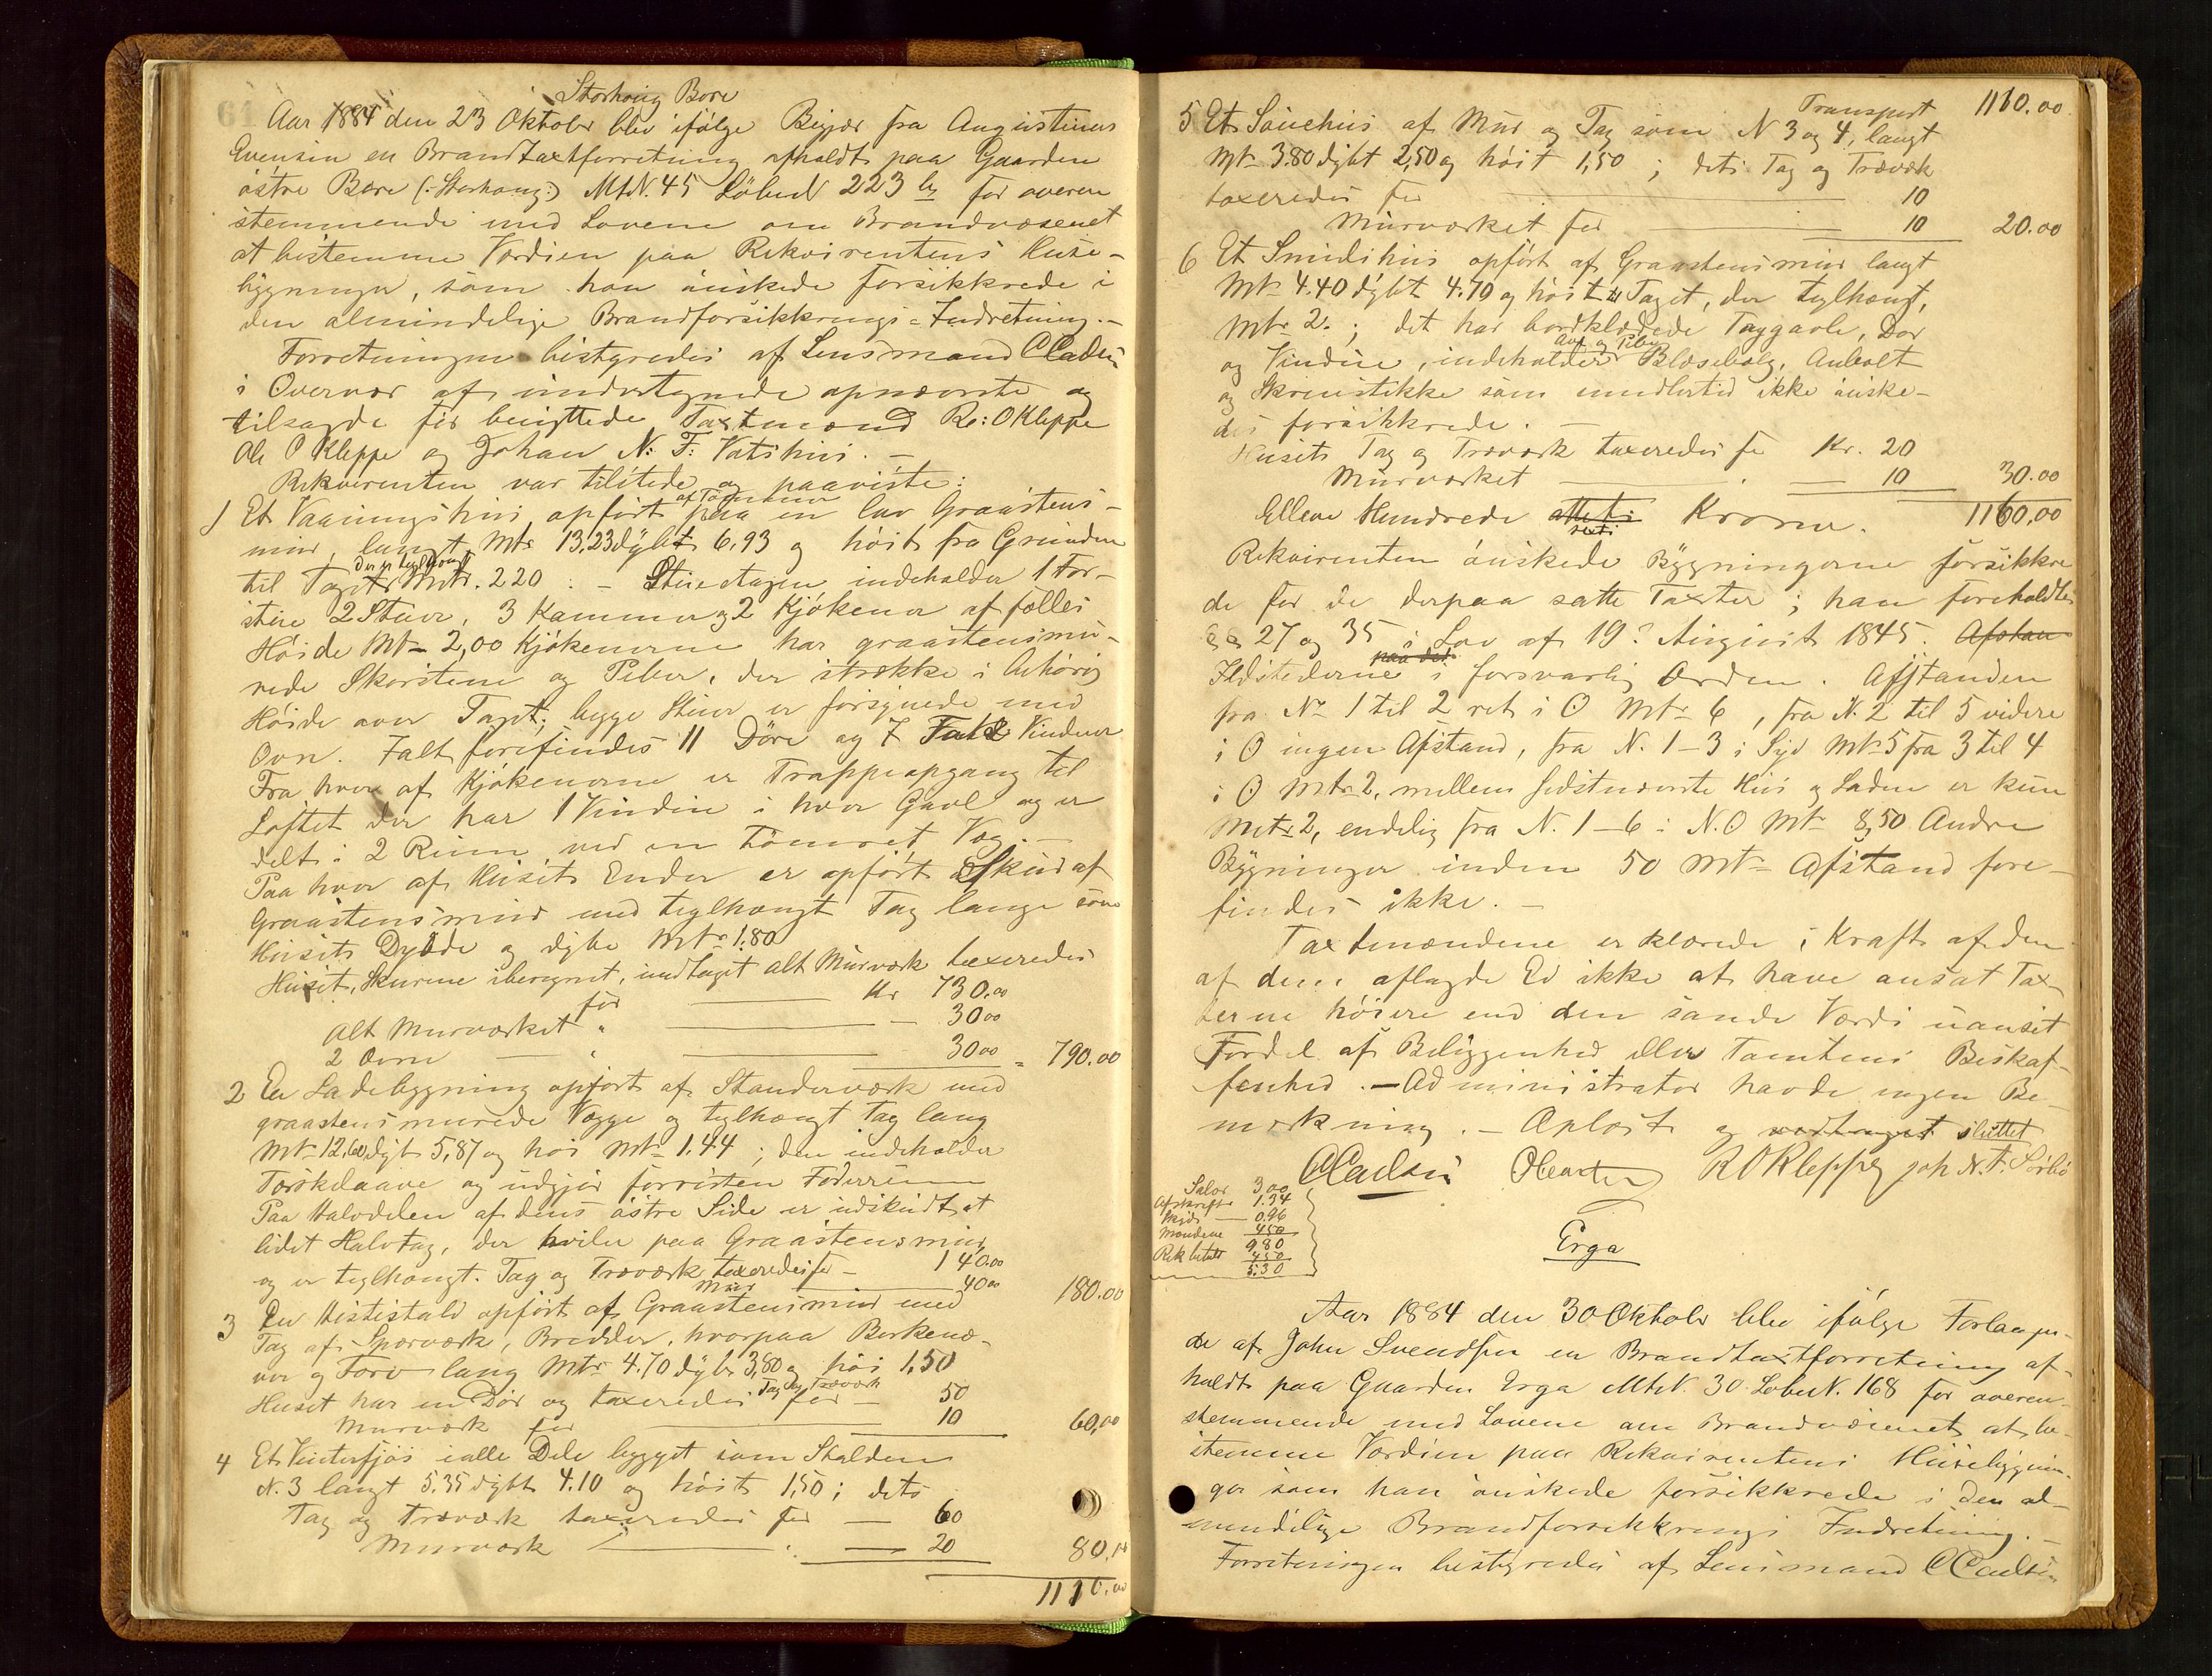 Storhoug Bore
Aar 1884 den 23 Oktober blev ifølge Begjær fra Augustinus
Evensen en Brandtaxtforretning afholdt paa Gaarden
østre Bore (: Storhoug :) Mt.N. 45 Løben 223 for overen
stemmende med Lovene om Brandvæsenet
at bestemme Værdien paa Rekvirentens Huse-
bygninger, som han ønskede forsikkrede i
den almindelige Brandforsikkrings-Indretning.-
Forretningen bestyredes af Lensmand
i Overvær af undertegnede opnævnte og
tilsagde før benyttede Taxtmænd Rs: O Kleppe
Ole O Kleppe og Johan N: F: Vatshus.-
Rekvirenten var tilstede og paaviste:
1 Et Vaaningshus opført af Tømmer paa en lav Graastens-
mur, langt Mtr 13,23 dybt 6,93 og høit fra Grunden
til Taget, der er teglhængt Mtr. 220.- Stueetagen indeholder 1 For-
stue 2 Stuer, 3 Kammer og 2 Kjøkener af fælles
Høide Mtr 2,00 Kjøkenerne har graastensmu-
rede Skorstene og Peber, der strække i behørig
Høide over Taget; begge Stuer er forsynede med
Ovn. Ialt forefindes 11 Døre og 7 Vinduer
Fra hver af Kjøkenerne er Trappeopgang til
Loftet der har 1 Vindue i hver Gavl og er
delt i 2 Rum ved en tømret Væg.-
Paa hver af Husets Ender er opført Skur af
Graastensmur med teglhængt Tag lange som
Husets Dybde og dybe Mtr 1.80
Huset, Skurene iberegnet, undtaget alt Murværk taxeredes
for Kr 730.00
Alt Murværket " 30 00
2 Ovne " 30 00 = 790.00
2 En Ladebygning opført af Standerværk med
graastensmurede Vægge og teglhængt Tag lang
Mtr 12,60 dyb 5,87 og høi Mtr 1.44; den indeholder
Tørskelaave og udgjør forresten Foderrum
Paa Halvdelen af dens østre Side er udskudt et
lidet Halvtag, der hviler paa Graastensmur
og er teglhængt. Tag og Træværk taxeredes for - 140.00
Mur 40 00 180.00
3 En Hestestald opført af Graastensmur med
Tag af Spærværk, Bredder, hvorpaa Birkenæ-
ver og Torv lang Mtr 4.70 dyb 3,80 og høi 1,50
Huset har en Dør og taxeredes Tag og Træværk for - 50
Murværk for 10 60,00
4 Et Vinterfjøs i alle Dele bygget som Stalden
N. 3 langt 5.35 dybt 4.10 og høit 1,50; dets
Tag og Træværk taxeredes for - 60
Murværk 20 80,00
1110.00
Transport 1110.00
5 Et Sauehus af Mur og Tag som N 3 og 4, langt
Mtr 3.80 dybt 2,50 og høit 1,50; dets Tag og Træværk
taxeredes for 10
Murværket for 10 20.00
6 Et Smidehus opført af Graastensmur langt
Mtr 4.40 dybt 4.70 og høit til Taget, der teglhængt,
Mtr 2.; det har bordklædede Taggavle, Dør
og Vindue, indeholder Avl og Peber Blæsebælg, Ambolt
og Skruestikke som imidlertid ikke ønske-
des forsikkrede.-
Husets Tag og Træværk taxeredes for Kr. 20
Murværket 10 30.00
Elleve Hundrede sexti Kroner. 1160,00
Rekvirenten ønskede Bygningerne forsikkre
de for de derpaa satte Taxter; han foreholdtes
§§ 27 og 35 i Lov af 19. August 1845.
Ildstederne i forsvarlig Orden. Afstanden
fra No 1 til 2 ret i O Mtr 6, fra N. 2 til 5 videre
i O ingen Afstand, fra N. 1-3 i Syd Mtr 5 fra 3 til 4
i O Mtr 2, mellem sidstnævnte Hus og Laden er kun
Mtr 2, endelig fra N. 1-6 i N.O Mtr 8,50 Andre
Bygninger inden 50 Mtr Afstand fore-
findes ikke.-
Taxtmændene erklærede i Kraft af den
af dem aflagde Ed ikke at have ansat Tax-
terne høiere end den sande Værdi uanset
Fordel af Beliggenhed eller Tomtens Beskaf-
fenhed.- Administrator havde ingen Be-
mærkning.- Oplæst og vedtaget sluttet
R O Kleppe Joh N. F.
Salær 3,00
Afskrift 1.34
Skyds 0.96
Mændene 4.50
9.80
Rek betalt 4.50
5.30
Erga
Aar 1884 den 30 Oktober blev ifølge Forlangen-
de af John Svendsen en Brandtaxtforretning af-
holdt paa Gaarden Erga Mt.N. 30 Løbe N. 168 for overen-
stemmende med Lovene om Brandvæsenet at be-
stemme Værdien paa Rekvirentens Husebygnin-
ger som han ønskede forsikkrede i den al-
mindelige Brandforsikkrings Indretning.-
Forretningen bestyredes af Lensmand